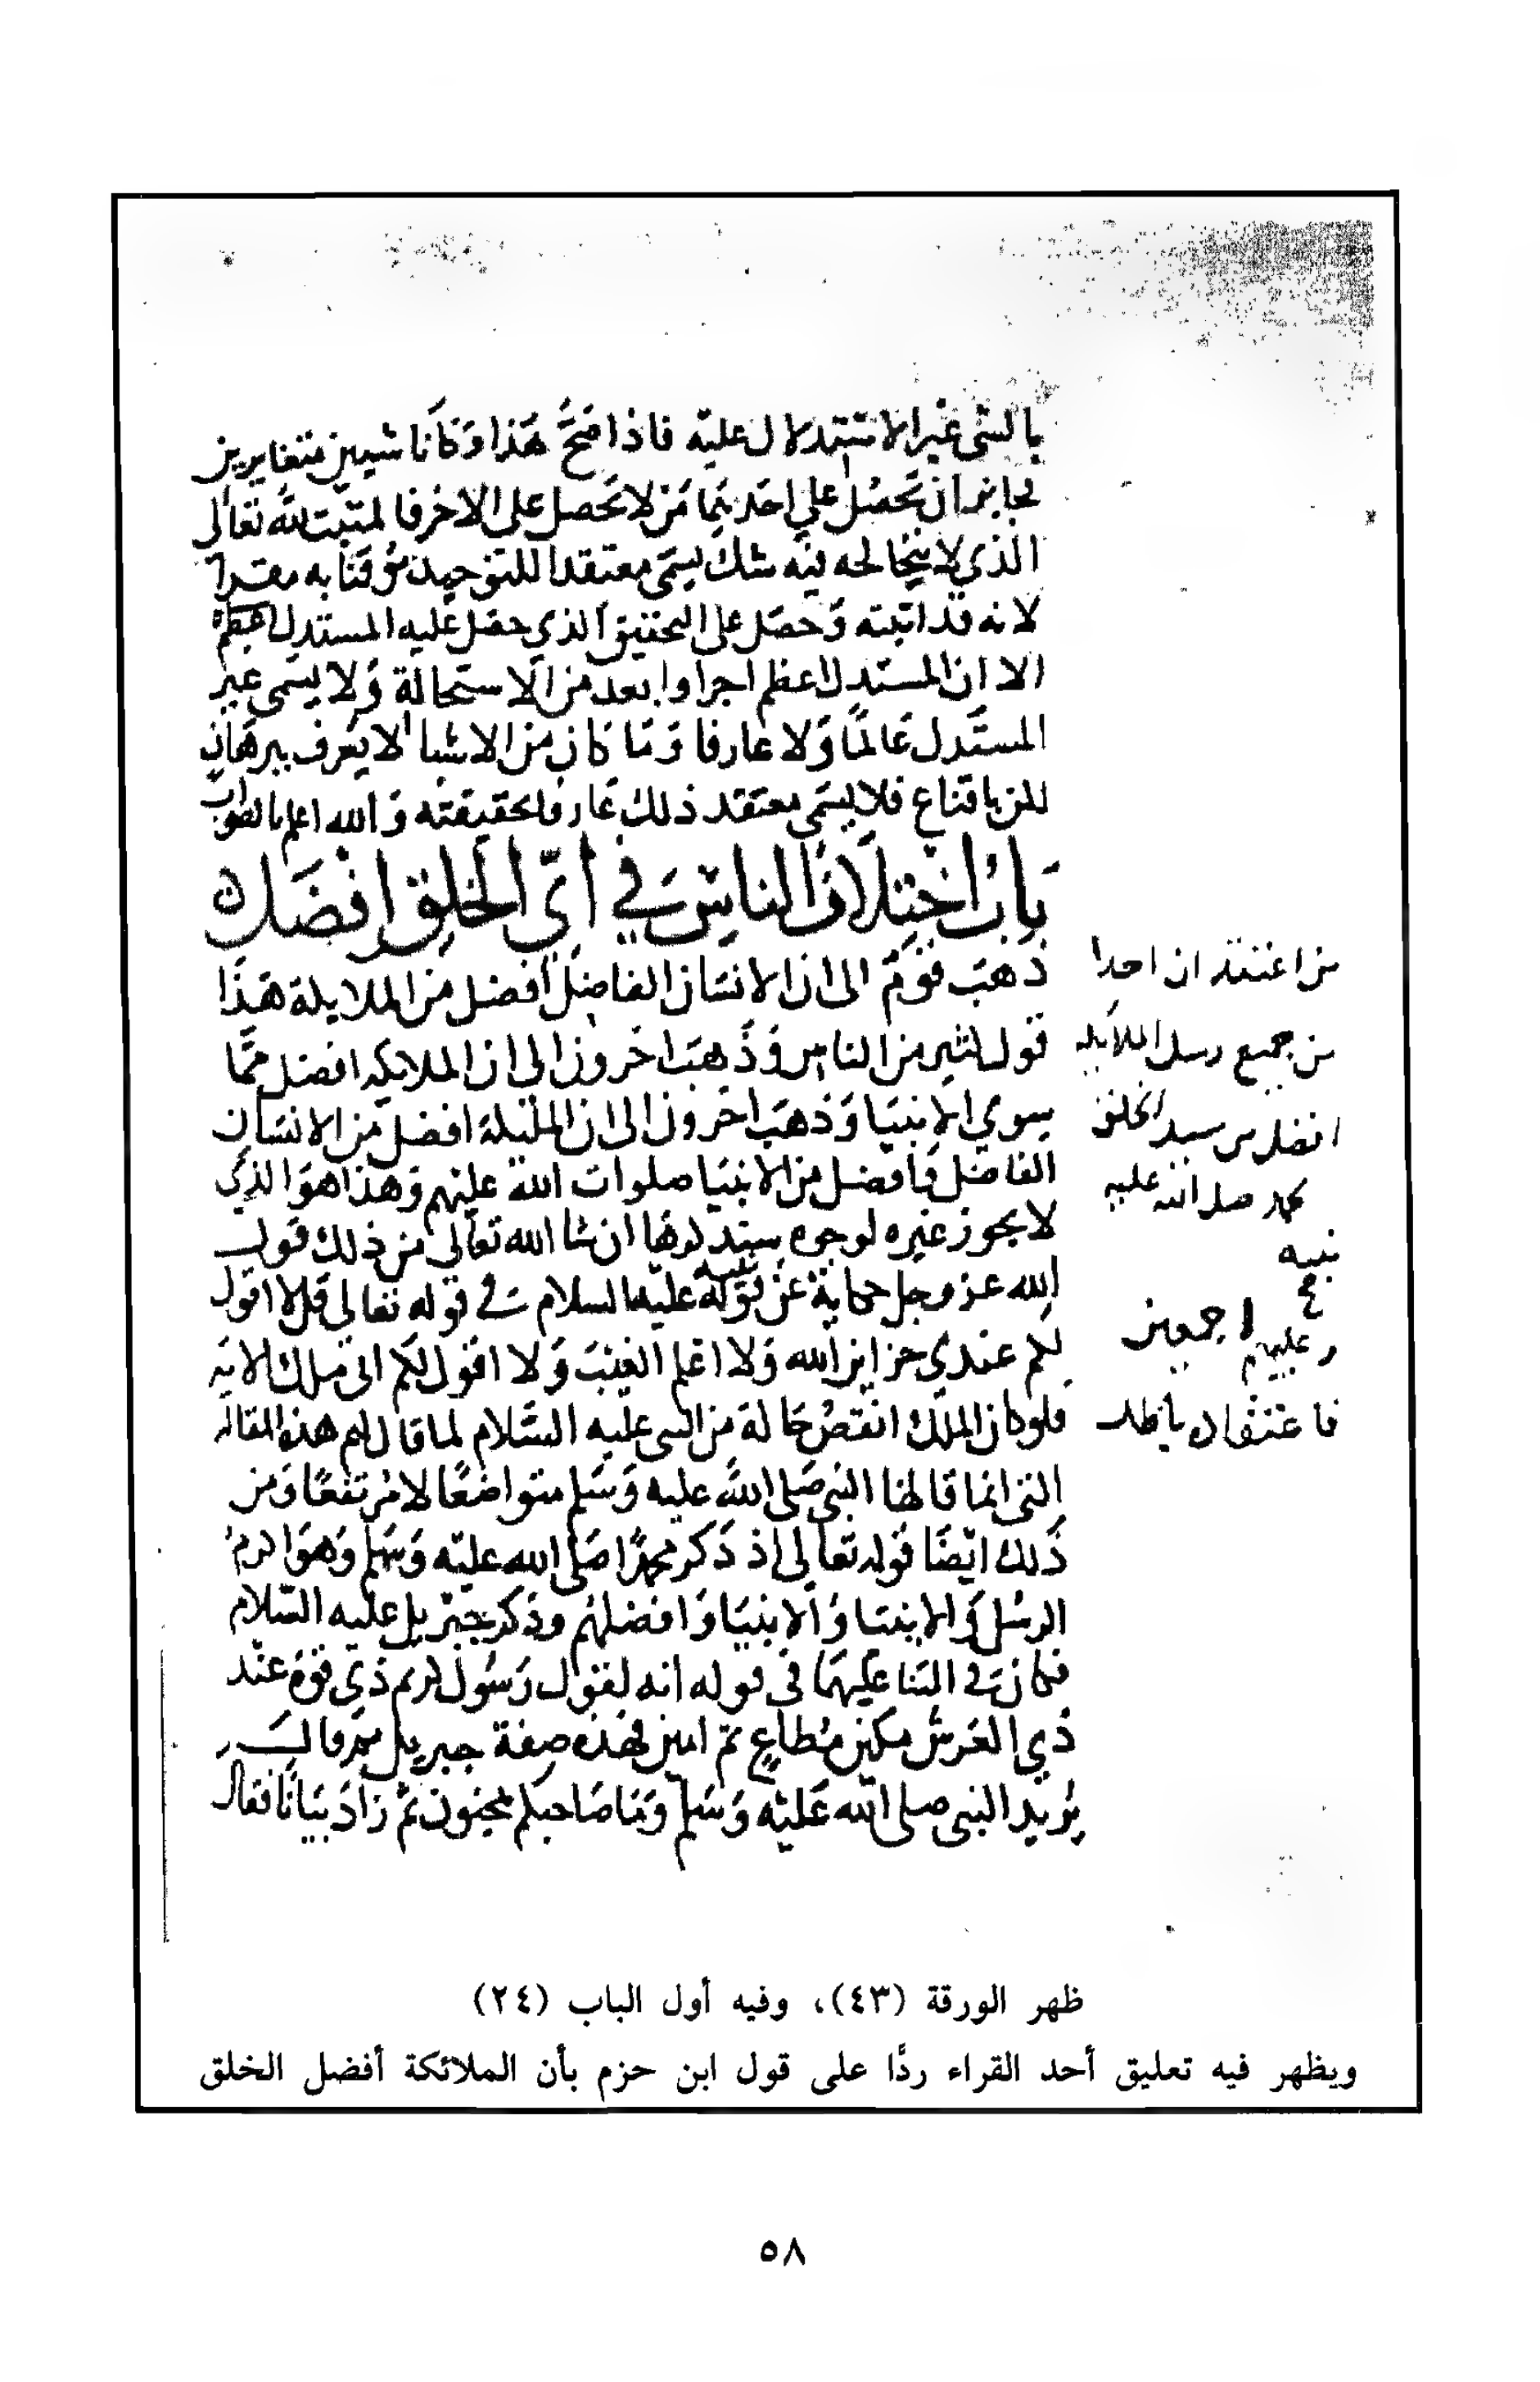 بالشي غير الاستدلال عليه فاذا صَحَّ هَذا وَكَانا شيين متغايرين
لجايز ان تحصُل علي احَدهِمَا مَن لا تحصل على الاخر فالمثبت لله تعَالى
الذي لا يخالجه فيه شك يسَمى معتقدا للتوحيد مُوقنا به مقرا
لانه قد اثبته وَحصَل على التحقيق الذي حصَل عَليه المستدل
الا ان المستدل اعظم اجرا وابعد من الاستحالة وَلا يسَمى غير
المستَدل عَالمًا وَلا عارفا وَمَا كان من الاشيا لا يعرف ببرهَان
لكن باقناع فلا يسَمى معتقد ذلك عَارفا بحقيقته وَالله اعلم بالصَّواب
بَابُ اخْتِلَافُ النَاسِ في أيّ الخَلقِ افْضَل
ذهبَ قومٌ الى ان الانسَان الفاضل أفضل من الملايكة هَذَا
قول كثير من الناس وَذَهبَ اخرون الى ان الملايكه افضل ممَّا
سوي الانبيَا وَذهبَ اخرون الى ان المليكة افضل مَن الانسَان
الفاضل وَافضل من الانبيَا صلوات الله عليهم وَهذا هوَ الذي
لا يجوز غيره لوجوه سنذكرهَا ان شا الله تعَالى من ذلك قول
الله عز وجل حكاية عن نبيه عليه السلام في قوله تعالى قل لا اقول
لكم عندي خزاين الله وَلا اعلم الغيبَ وَلا اقول لكم اني ملك الايَه
فلو كان الملَك انقصُ حَالة من النبي عليه السَّلام لما قال لهم هذه المقاله
التي انما قالهَا النبي صَلى اللهُ عليه وَسَلم متواضعًا لا مُرتفعًا وَمن
ذَلك ايضَا قوله تعَالى اذ ذَكر محمدًا صَلى الله عليه وَسَلم وَهوَ اكرمُ
الرسُل وَالانبيَا وَافضلهُم وذكر جبريل عليه السَّلام
فكان في الثنا عليهمَا في قوله انه لقول رَسُول كريم ذي قوة عنْد
ذي العَرش مكين مُطاعٍ ثم امين فهَذه صفة جبريل ثم قال
يُريد النبي صلى الله عَليه وَسَلم وَمَا صَاحبكم بمجنون ثمَّ زادَ بيَانًا فقال
من اعتقد ان احدا
من جميع رسل الملايكه
افضل من سيد الخلق
محمد صلى الله عليه
نبيه
وعليهم اجمعين
فاعتقاده باطل
ظهر الورقة (٤٣)، وفيه أول الباب (٢٤)
ويظهر فيه تعليق أحد القراء ردًّا على قول ابن حزم بأن الملائكة أفضل الخلق
٥٨